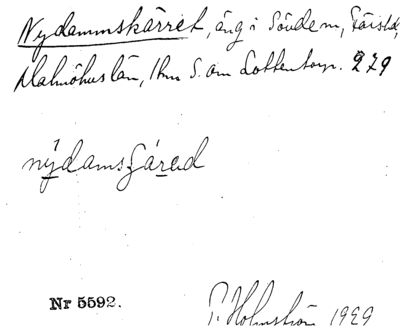 Nydammskärret, äng i
Malmöhus län, 1 km S. om Lottentorp. 279
nýdamsʃárəd
Nr 5592.
P. Holmström 1929